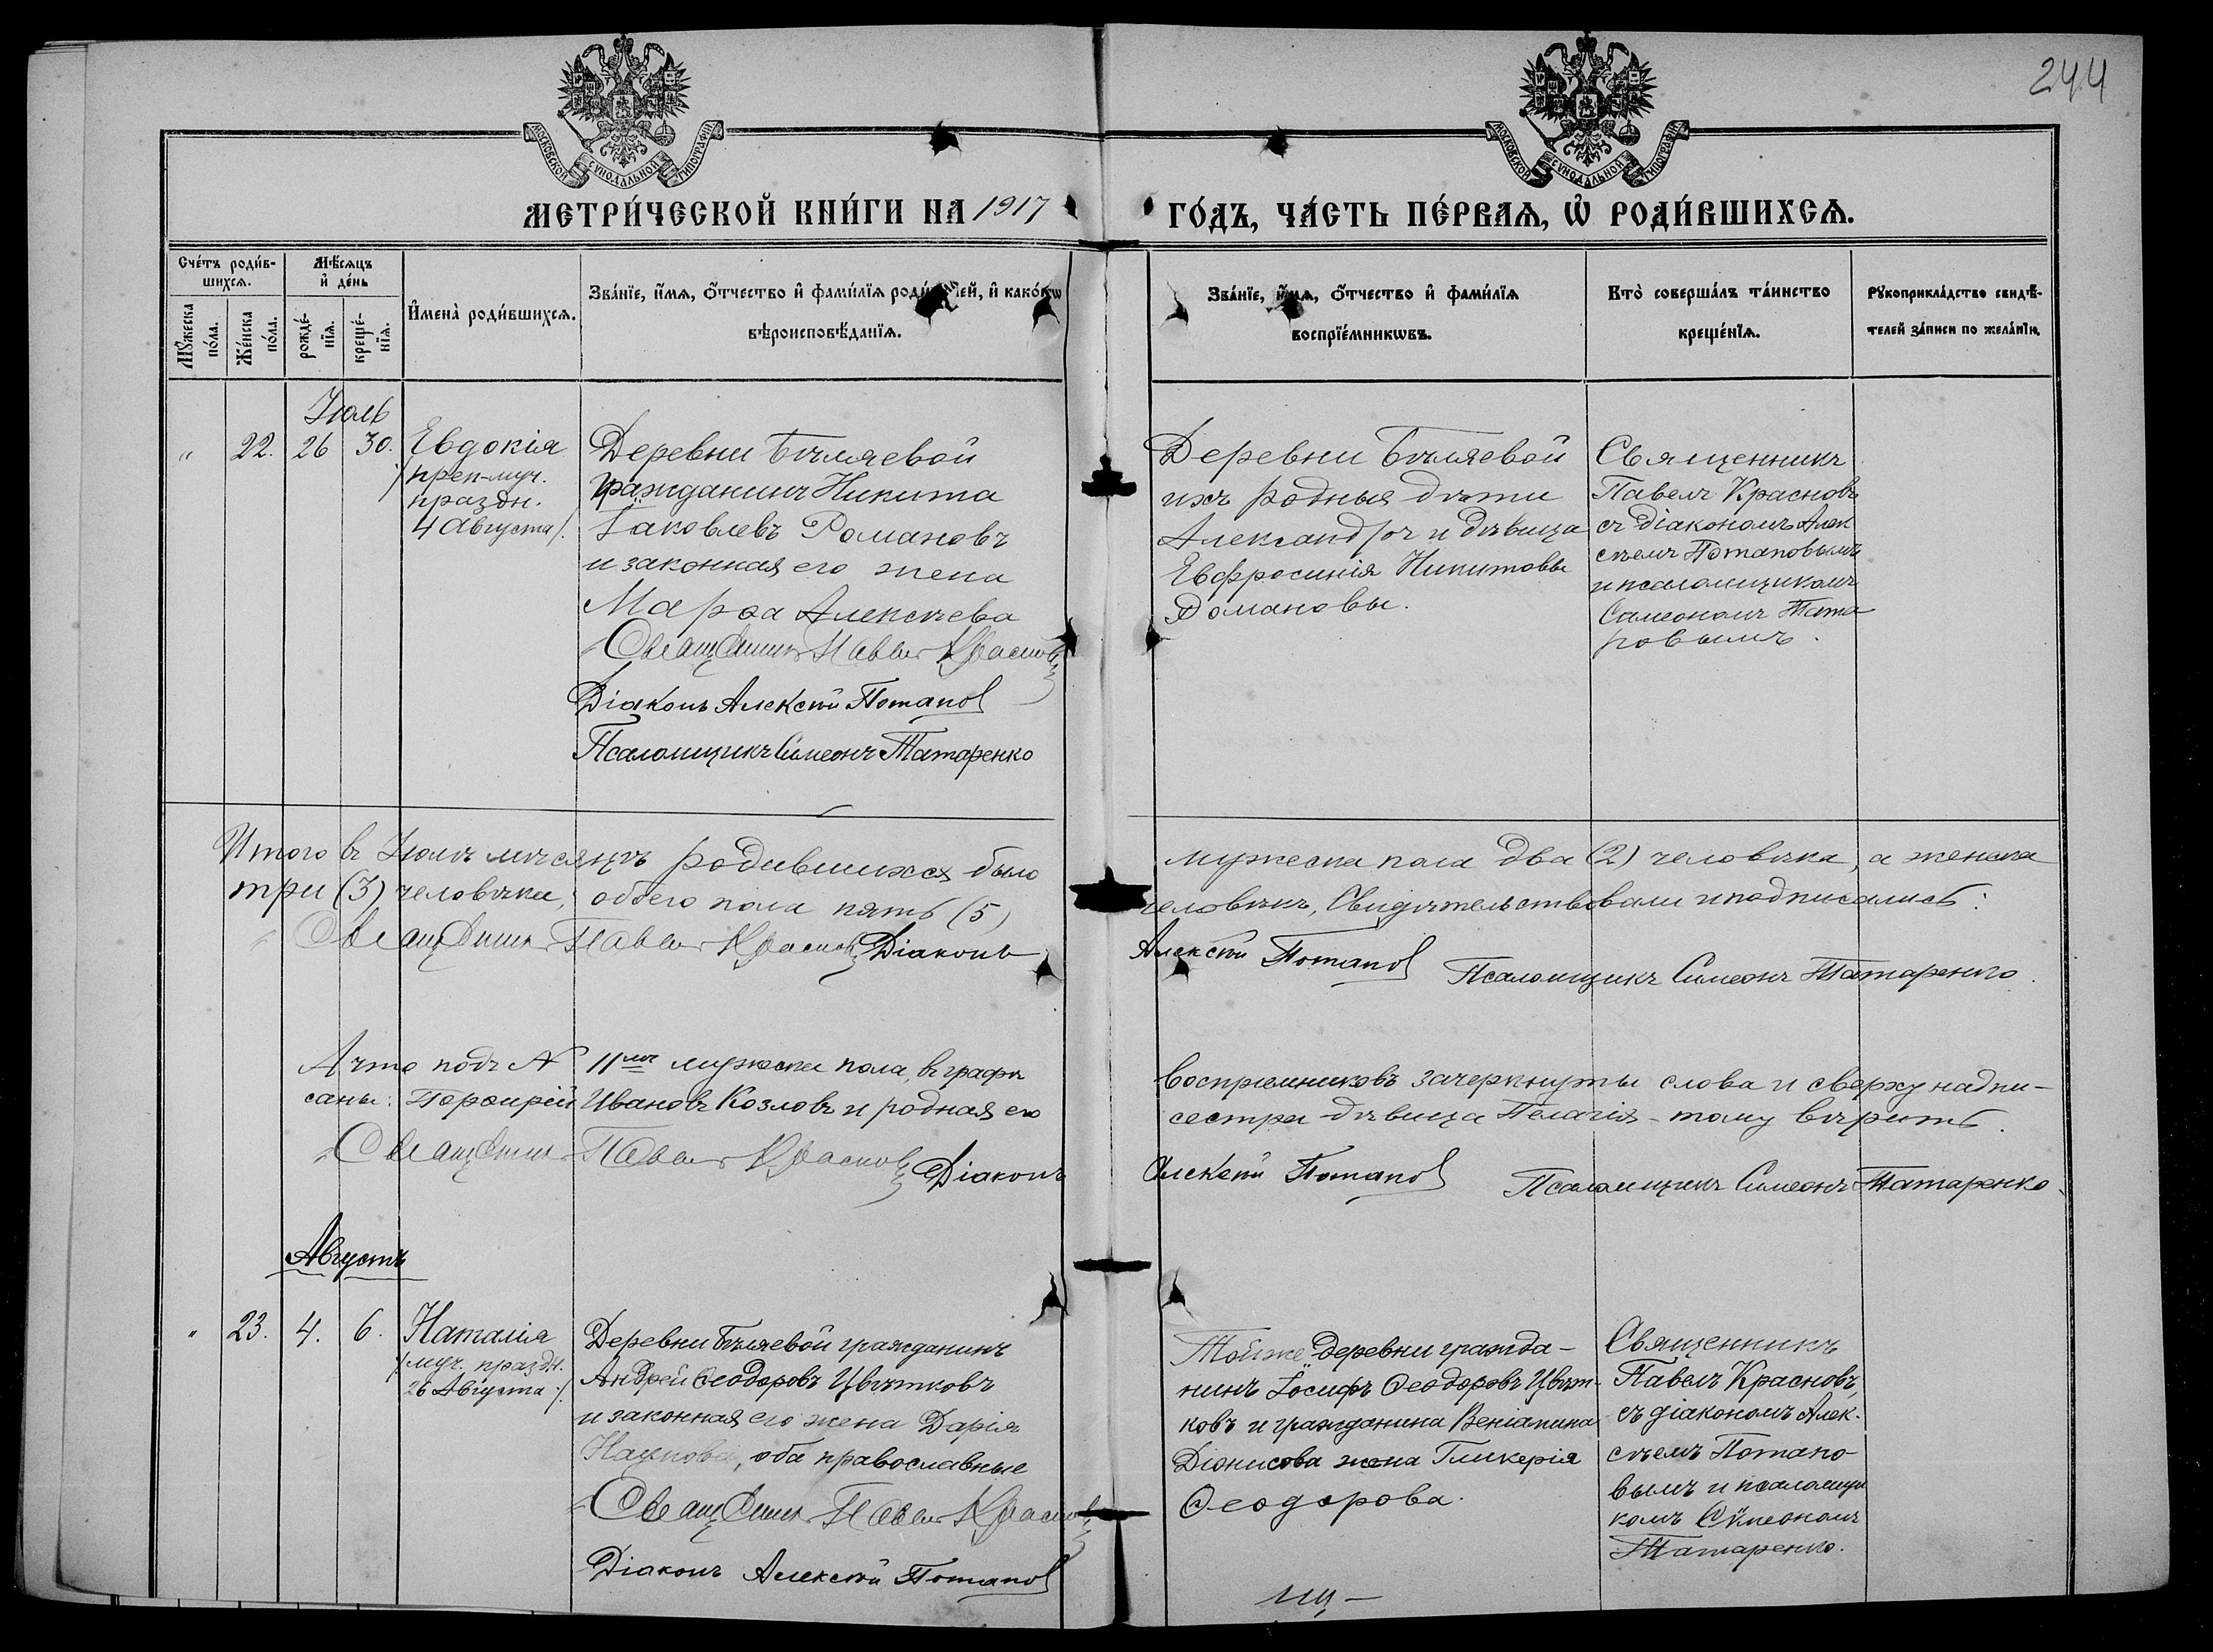 244
МОСКОВСКОЙ СУНОДАЛЬНОЙ ТИПОГРАФІИ
МОСКОВСКОЙ СУНОДАЛЬНОЙ ТИПОГРАФІИ
МЕТРИ́ЧЕСКОЙ КНИ́ГИ НА 1917
ГО́ДЪ, ЧА́СТЬ ПЕ́РВАѦ, Ѡ҆ РОДИ́ВШИХСѦ.
Сче́тъ роди́в-
шихсѧ.
Мѣ́сѧцъ
и҆ де́нь
Мꙋ́жеска
по́ла.
Же́нска
по́ла.
рожде́-
нїѧ.
креще́-
нїѧ.
И҆мена̀ роди́вшихсѧ.
Зва́нїе, и҆́мѧ, ѻ҆́тчество и҆ фами́лїѧ роди́телей, и҆ како́гѡ
вѣроисповѣ́данїѧ.
Зва́нїе, и҆́мѧ, ѻ҆́тчество и҆ фами́лїѧ
воспрїе́мникѡвъ.
Кто̀ соверша́лъ та́инство
креще́нїѧ.
Рꙋкоприкла́дство свидѣ́-
телей за́писи по жела́нїю.
Іюль
" 22. 26 30. Евдокія
/преп-муч.
праздн.
4 Августа/.
Деревни Бѣляевой
гражданинъ Никита
Іаковлевъ Романовъ
и законная его жена
Марѳа Алексѣева
Священникъ Павелъ Красновъ
Діаконъ Алексѣй Потапов
Псаломщикъ Симеонъ Татаренко
Деревни Бѣляевой
ихъ родныя дѣти
Александръ и дѣвица
Евфросинія Никитовы
Романовы.
Священникъ
Павелъ Красновъ
съ діакономъ Алек
сѣемъ Потаповымъ
и псаломщикомъ
Симеономъ Тата
ровымъ.
Итого въ Іюлѣ мѣсяцѣ родившихся было
мужеска пола два (2) человѣка, а женска
три (3) человѣка, обоего пола пять (5)
человѣкъ, Свидѣтельствовали и подписались:
Священникъ Павелъ Красновъ Діаконъ
Алексѣй Потапов Псаломщикъ Симеонъ Татаренко.
А что подъ № 11мъ мужска пола, въ графѣ
воспріемниковъ зачеркнуты слова и сверху надпи-
саны: Порфирій Ивановъ Козловъ и родная его
сестра дѣвица Пелагія - тому вѣрить.
Священникъ Павелъ Красновъ Діаконъ
Алексѣй Потапов Псаломщикъ Симеонъ Татаренко.
Августъ
" 23. 4. 6. Наталія
/муч. праздн.
26 Августа:/.
Деревни Бѣляевой гражданинъ
Андрей Ѳеодоровъ Цвѣтковъ
и законная его жена Дарія
Наумова, оба православные
Священникъ Павелъ Красновъ
Діаконъ Алексѣй Потапов
Тойже деревни гражда-
нинъ Іосифъ Ѳеодоровъ Цвѣт-
ковъ и гражданина Веніамина
Діонисова жена Гликерія
Ѳеодорова.
Священникъ
Павелъ Красновъ,
съ діакономъ Алек-
сѣемъ Потапо-
вымъ и псаломщи
комъ Симеономъ
Татаренко.